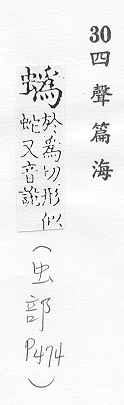 30四聲篇海
蟡於為切形似
蛇又音詭
(虫部
P474)